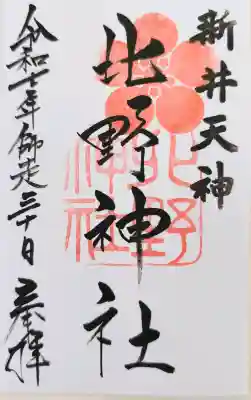 新井天神
北野神社
北野
神社
令和七年師走三十日 奉拝